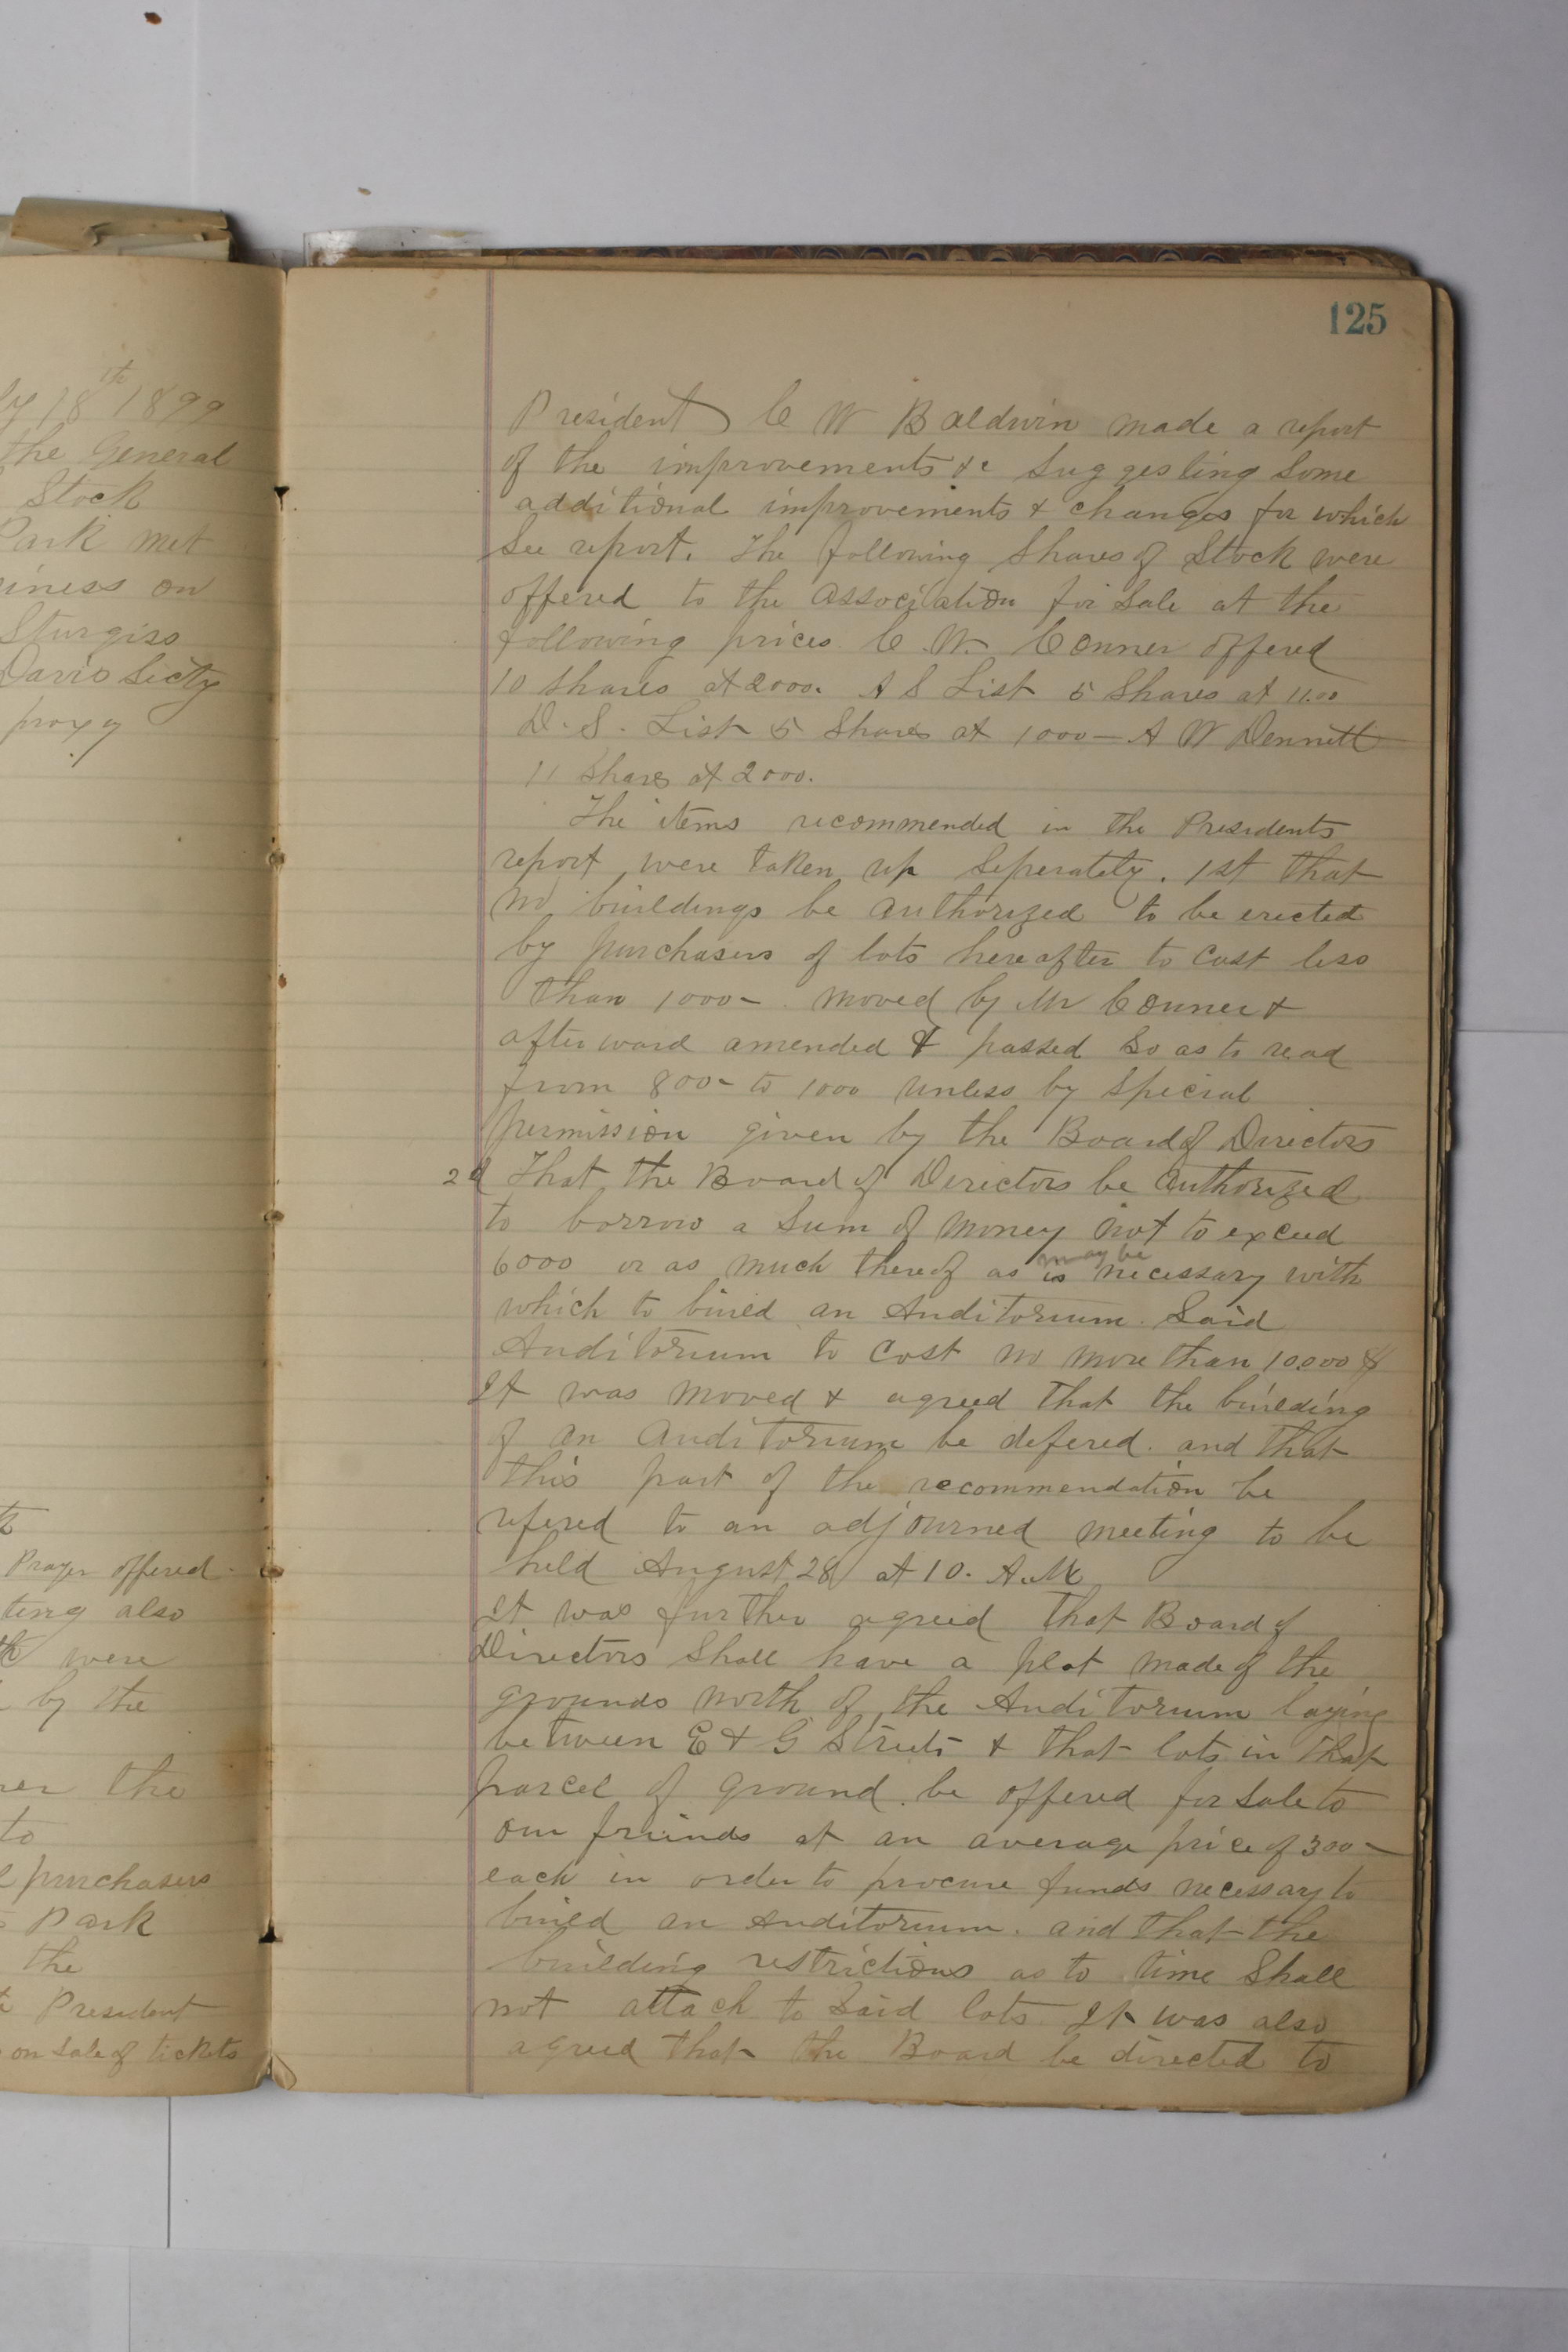 ly 18th 1899
the General
Stock
Park met
iness on
Sturgiss
Davis Secty
proxy
Prayer offered
ting also
were
by the
the
to
purchasers
Park
the
President
on Sale of tickets
125
President C W Baldwin made a report
of the improvements &c Suggesting Some
additional improvements & changes for which
See report. The following Shares of Stock were
offered to the Association for Sale at the
following prices C. W. Conner offered
10 Shares at 2000. A S List 5 Shares at 11.00
D. S. List 5 Shares at 1000 — A W Dennett
11 Shares at 2000.
The items recommended in the Presidents
report were taken up Seperately. 1st that
no buildings be authorized to be erected
by purchasers of lots hereafter to Cost less
than 1000 - . moved by Mr Conner &
afterward amended & passed So as to read
from 800 - to 1000 unless by Special
permission given by the Board of Directors
2d That the Board of Directors be Authorized
to borrow a Sum of money not to exceed
6000 or as much thereof as is may be necessary with
which to build an Auditorium. Said
Auditorium to Cost no more than 10.000 $
It was moved & agreed that the building
of an Auditorium be defered. and that
this part of the recommendation be
refered to an adjourned meeting to be
held August 28 at 10. A.M
It was further agreed that Board of
Directors Shall have a plat made of the
grounds north of the Auditorium laying
between E & G Streets & that lots in that
parcel of ground be offered for Sale to
our friends at an average price of 300 -
each in order to procure funds necessary to
build an Auditorium. and that the
building restrictions as to time Shall
not attach to Said lots. It was also
agreed that the Board be directed to